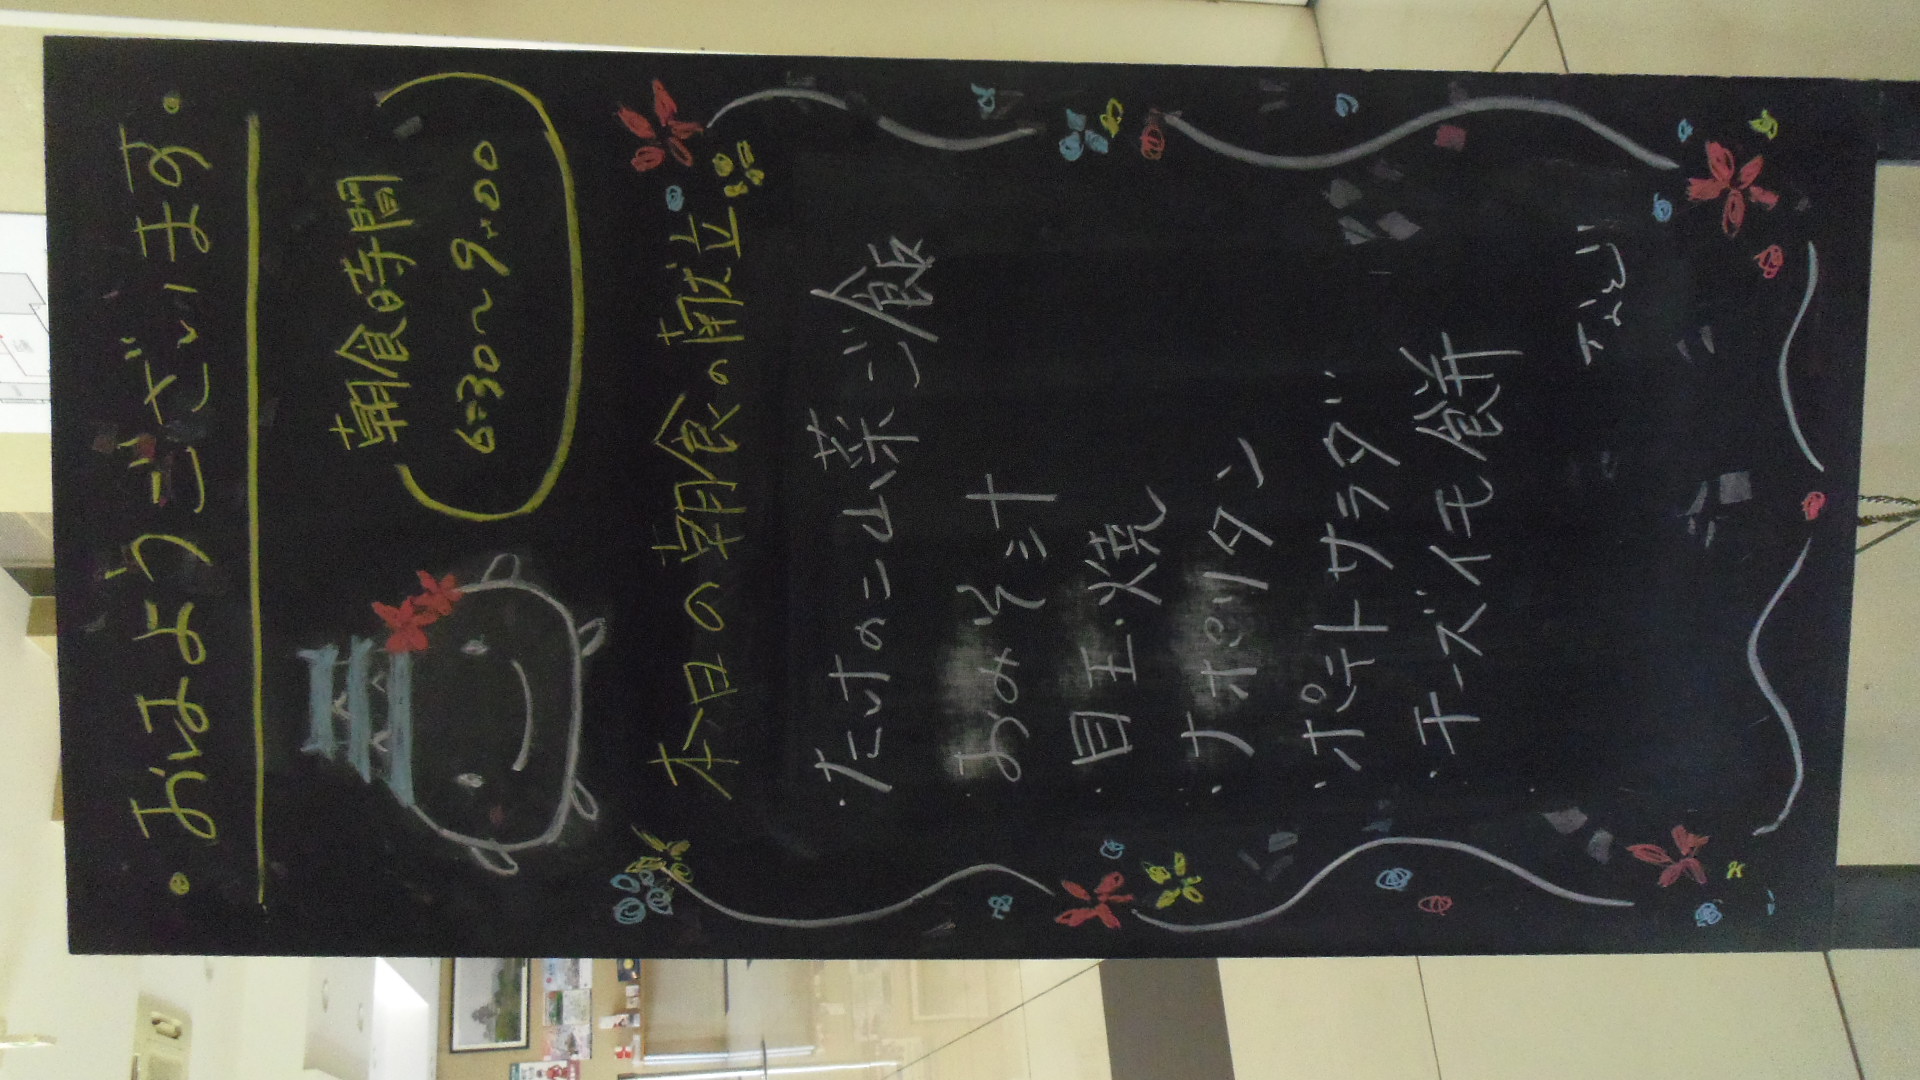 ・おはようございます・
朝食時間
6:30～9:00
本日の朝食の献立
・たけのこ山菜ご飯
おみそ汁
・目玉焼
・ナポリタン
・ポテトサラダ
・チーズイモ餅